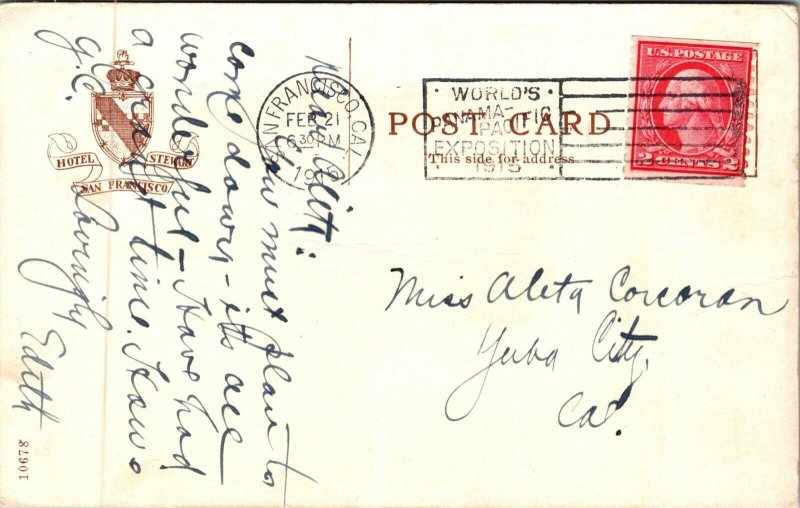 HOTEL STEWART
SAN FRANCISCO
SAN FRANCISCO, CAL.
FEB 21
6 30 PM
19
WORLD'S
PANAMA-PACIFIC
EXPOSITION
1915
U.S. POSTAGE
2 CENTS 2
POST CARD
This side for address
Dear Aleta:
You must plan to
come down - its all
wonderful - Have had
a great time. How's
G.C.
Lovingly
Edith
Miss Aleta Corcoran
Yuba City,
Cal.
10678